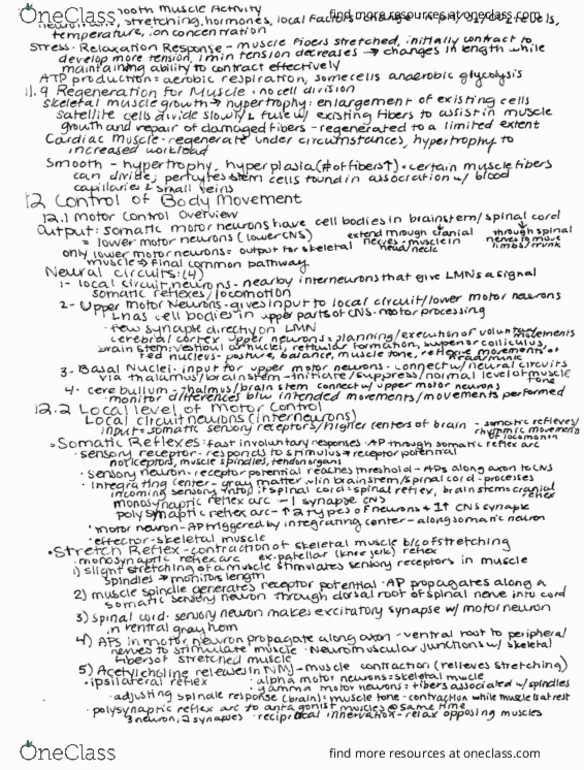 OneClass
find more resources at oneclass.com
smooth muscle Activity
stretching, hormones, local factors - change in pH,
temperature, ion concentration
Stress-Relaxation Response - muscle fibers stretched, initially contract to
develop more tension, 1 min tension decreases → changes in length while
maintaining ability to contract effectively
ATP production: aerobic respiration, some cells anaerobic glycolysis
11.9 Regeneration for Muscle · no cell division
skeletal muscle growth → hypertrophy: enlargement of existing cells
satellite cells divide slowly & fuse w/ existing fibers to assist in muscle
growth and repair of damaged fibers - regenerated to a limited extent
Cardiac muscle · regenerate under circumstances, hypertrophy to
increased workload
Smooth - hypertrophy, hyperplasia (# of fibers ↑) · certain muscle fibers
can divide; pericytes stem cells found in association w/ blood
capillaries & small veins
12 Control of Body Movement
12.1 Motor Control Overview
Output: somatic motor neurons have cell bodies in brainstem/spinal cord
= lower motor neurons (lower CNS)
extend through cranial
nerves · muscle in
head/neck
through spinal
nerves to move
limbs/trunk
only lower motor neurons = output for skeletal
muscle → final common pathway
Neural circuits: (4)
1 - local circuit neurons - nearby interneurons that give LMNs a signal
somatic reflexes/locomotion
2 - Upper Motor Neurons - gives input to local circuit/lower motor neurons
↳ has cell bodies in upper parts of CNS · motor processing
· few synapse directly on LMN
cerebral cortex upper neurons = planning/execution of voluntary movements
brain stem: vestibular nuclei, reticular formation, superior colliculus,
red nucleus - posture, balance, muscle tone, reflexive movements of
head/trunk
3 - Basal Nuclei · input for upper motor neurons · connect w/ neural circuits
via thalamus/brainstem - initiate/suppress/normal level of muscle
tone
4. cerebellum - thalmus/brain stem connect w/ upper motor neurons
· monitor differences b/w intended movements/movements performed
12.2 Local level of Motor Control
Local circuit neurons (interneurons)
input = somatic sensory receptors/higher centers of brain - somatic reflexes/
rhythmic movement
of locomotion
· Somatic Reflexes: fast involuntary responses · AP through somatic reflex arc
· sensory receptor - responds to stimulus → receptor potential
nociceptors, muscle spindles, tendon organs
· sensory neuron - receptor potential reaches threshold - APs along axon to CNS
· Integrating center - gray matter w/in brainstem/spinal cord - processes
incoming sensory info; if spinal cord = spinal reflex, brain stem = cranial
reflex
monosynaptic reflex arc - 1 synapse CNS
polysynaptic reflex arc - ↑2 types of neurons + 1↑ CNS synapse
· motor neuron - AP triggered by integrating center - along somatic neuron
· effector - skeletal muscle
· Stretch Reflex - contraction of skeletal muscle b/c of stretching
· monosynaptic reflex arc ex. patellar (knee jerk) reflex
1) slight stretching of a muscle stimulates sensory receptors in muscle
spindles → monitors length
2) muscle spindle generates receptor potential · AP propagates along a
somatic sensory neuron through dorsal root of spinal nerve into cord
3) spinal cord · sensory neuron makes excitatory synapse w/ motor neuron
in ventral gray horn
4) APs in motor neuron propagate along axon - ventral root to peripheral
nerves to stimulate muscle · Neuromuscular junctions w/ skeletal
fibers of stretched muscle
5) Acetylcholine releases in NMJ - muscle contraction (relieves stretching)
· ipsilateral reflex
· alpha motor neurons = skeletal muscle
· gamma motor neurons = fibers associated w/ spindles
· adjusting spinal response (brain): muscle tone - contraction while muscle is at rest
· polysynaptic reflex arc to antagonist muscles @ same time
3 neuron, 2 synapses · reciprocal innervation - relax opposing muscles
OneClass
find more resources at oneclass.com